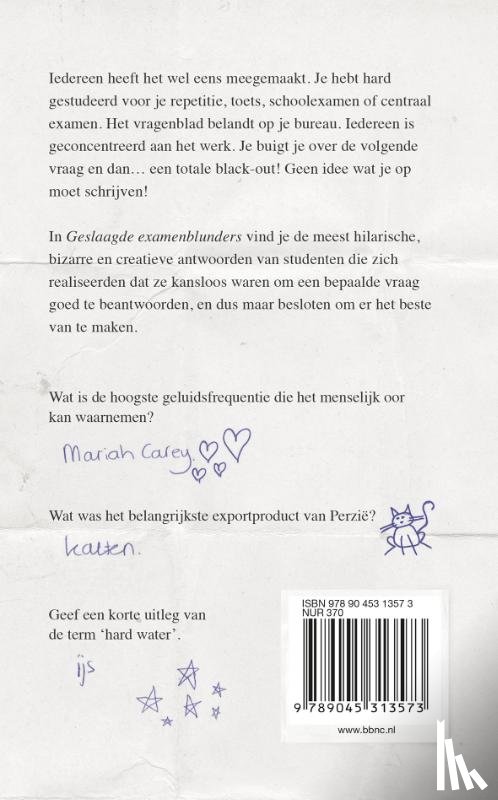 Iedereen heeft het wel eens meegemaakt. Je hebt hard
gestudeerd voor je repetitie, toets, schoolexamen of centraal
examen. Het vragenblad belandt op je bureau. Iedereen is
geconcentreerd aan het werk. Je buigt je over de volgende
vraag en dan… een totale black-out! Geen idee wat je op
moet schrijven!
In Geslaagde examenblunders vind je de meest hilarische,
bizarre en creatieve antwoorden van studenten die zich
realiseerden dat ze kansloos waren om een bepaalde vraag
goed te beantwoorden, en dus maar besloten om er het beste
van te maken.
Wat is de hoogste geluidsfrequentie die het menselijk oor
kan waarnemen?
Mariah Carey.
Wat was het belangrijkste exportproduct van Perzië?
katten.
Geef een korte uitleg van
de term ‘hard water’.
ijs
ISBN 978 90 453 1357 3
NUR 370
9 789045 313573
www.bbnc.nl